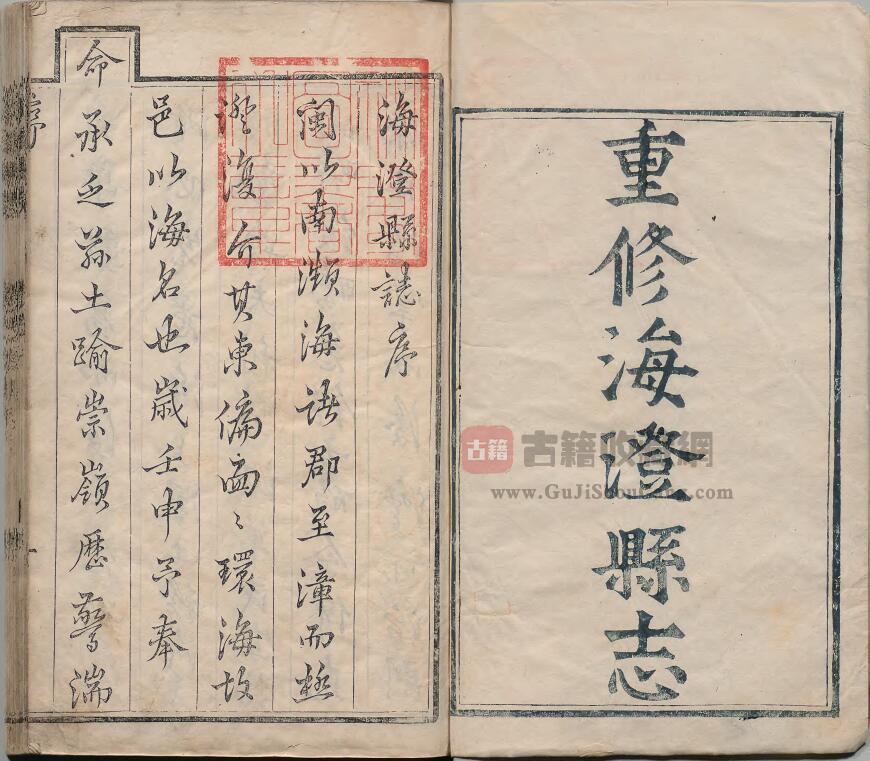 重修海澄縣志
海澄縣誌序
閩以南瀕海諸郡至漳而極
澄復介其東偏面〻環海故
邑以海名也歲壬申予奉
命
承乏茲土踰崇嶺歷驚湍
序
古籍
古籍收 網
www.GuJiShouCang.com